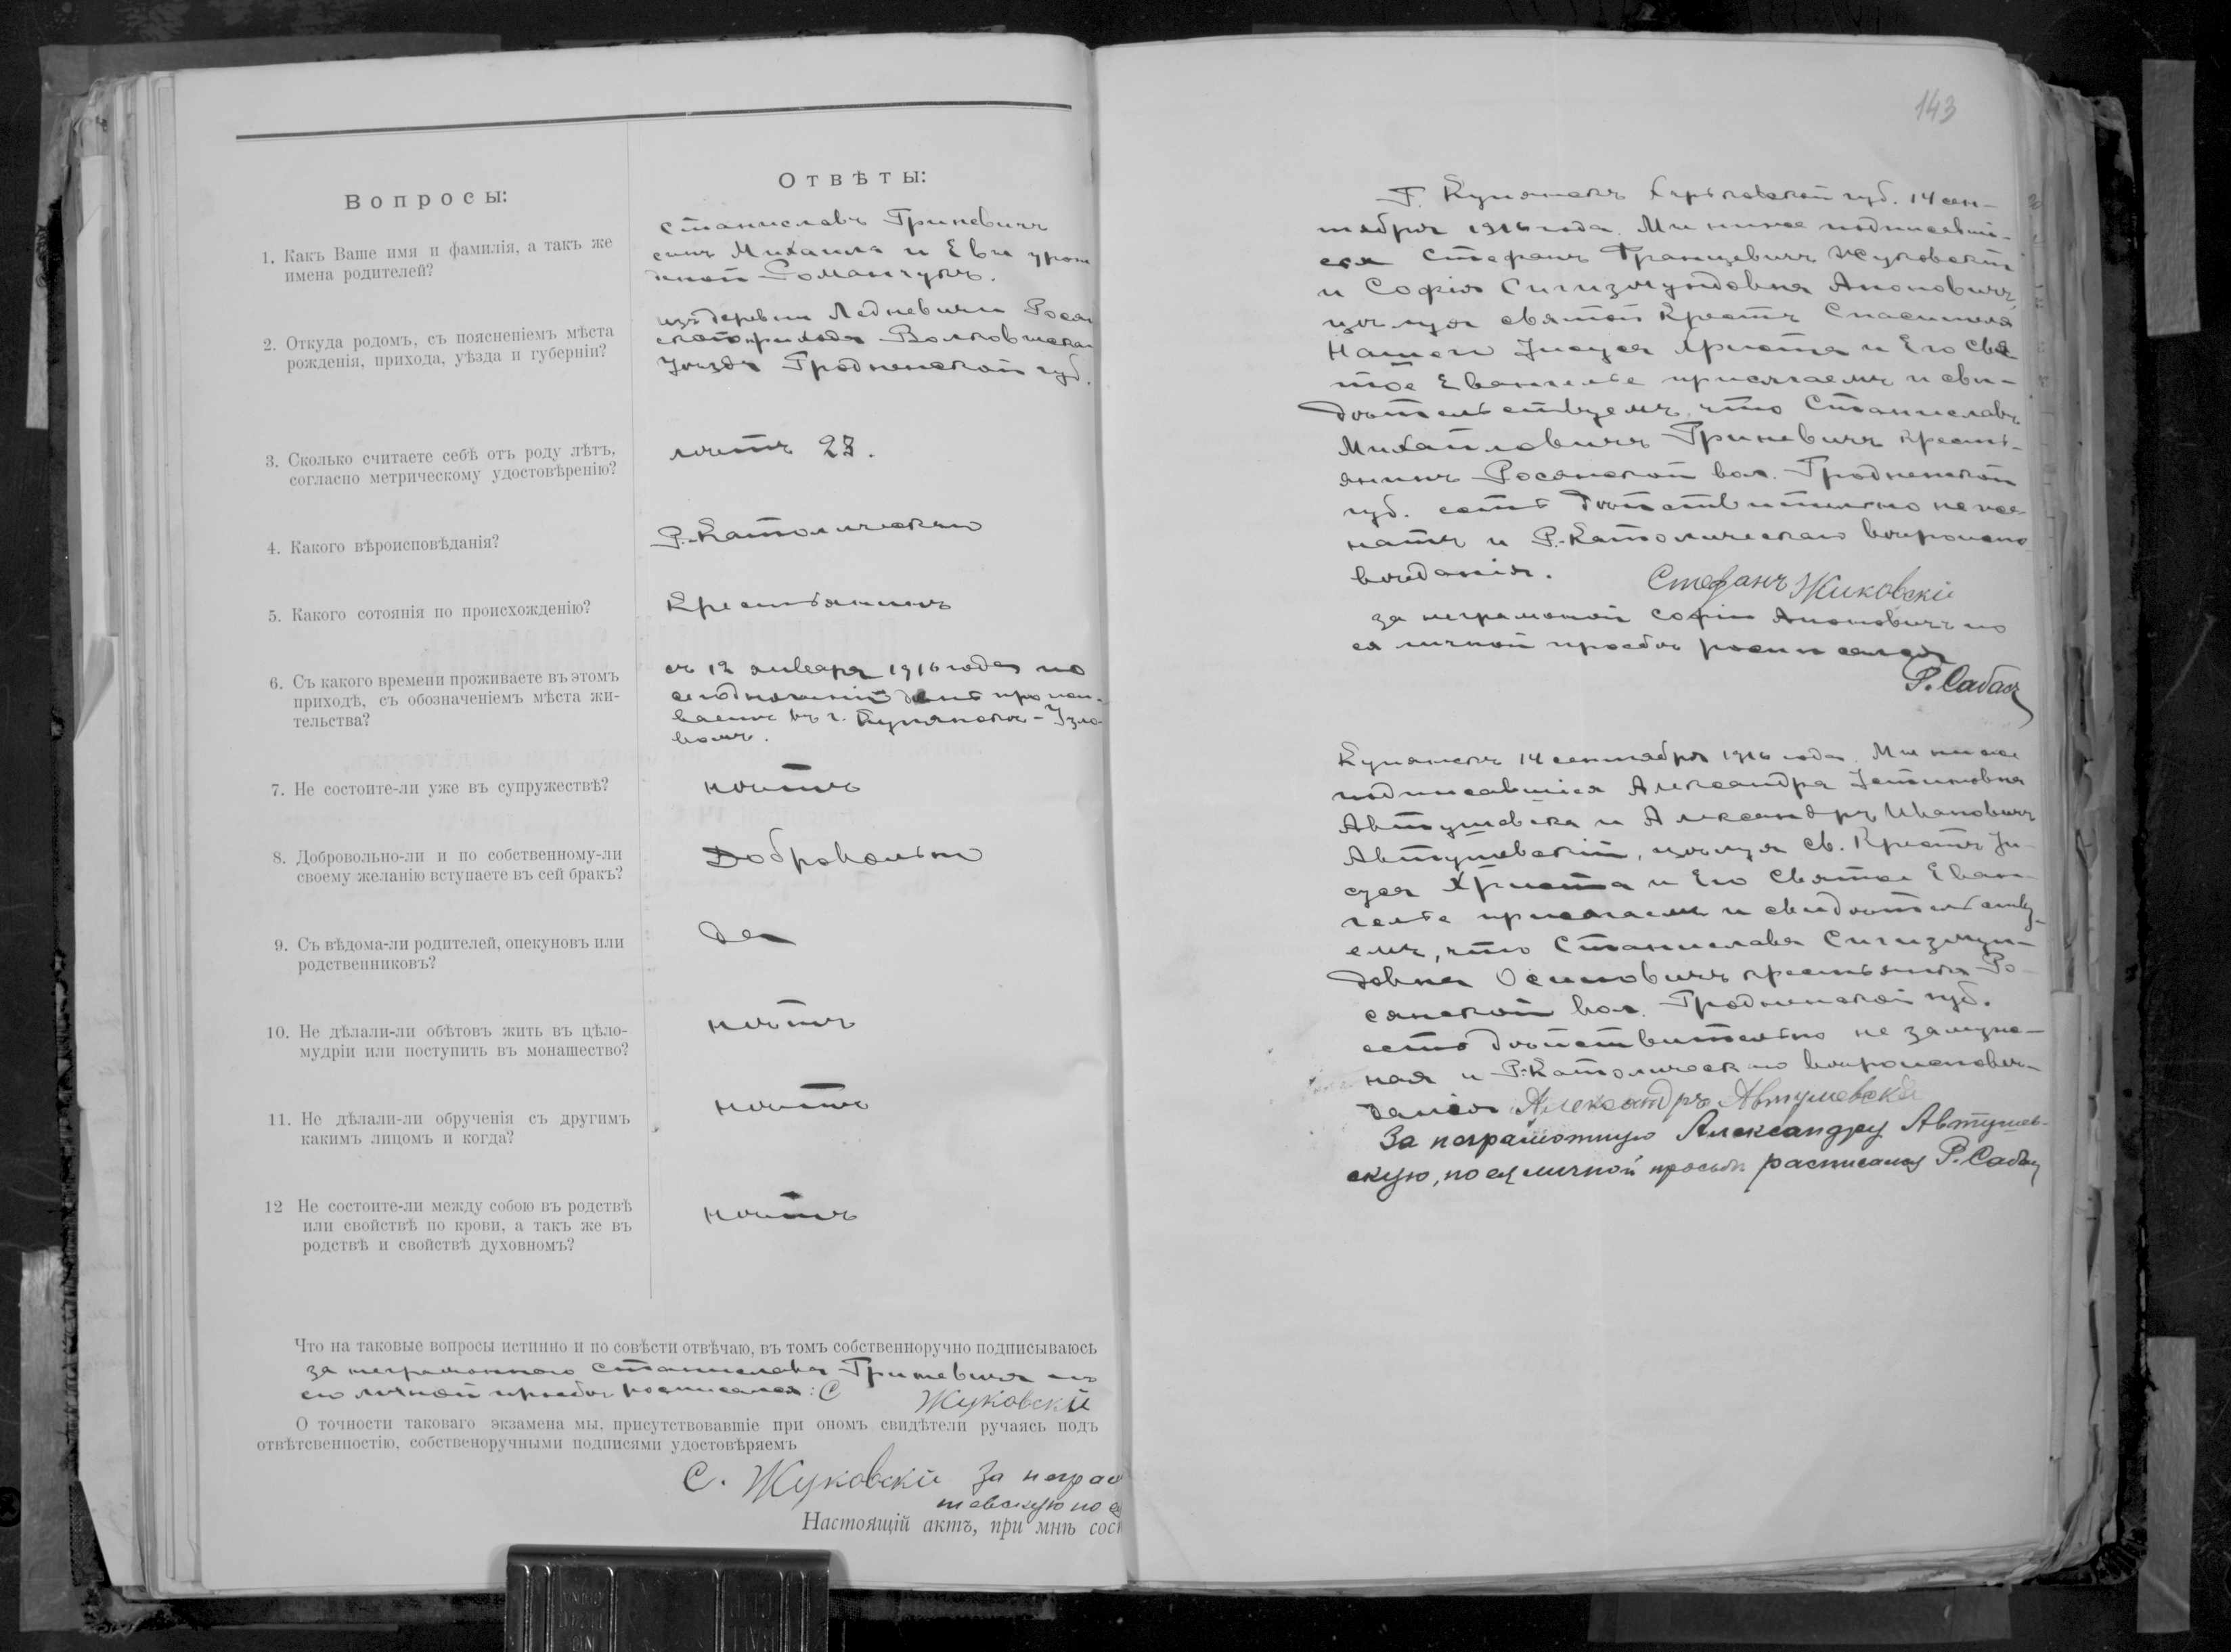 Вопросы:
Отвѣты:
1. Какъ Ваше имя и фамилія, а такъ же
имена родителей?
Станиславъ Гриневичъ
сынъ Михаила и Евы урож
дной Романчукъ.
2. Откуда родомъ, съ поясненіемъ мѣста
рожденія, прихода, уѣзда и губерніи?
изъ деревни Ледневичи Росян
скаго прихода Волковыскаго
уѣзда Гродненской губ.
3. Сколько считаете себѣ отъ роду лѣтъ,
согласно метрическому удостовѣренію?
лѣтъ 23.
4. Какого вѣроисповѣданія?
Р.-Католическаго
5. Какого сотоянія по происхожденію?
Крестьянинъ
6. Съ какого времени проживаете въ этомъ
приходѣ, съ обозначеніемъ мѣста жи-
тельства?
съ 12 января 1916 года по
сегодняшній день прожи-
ваетъ въ г. Купянскъ-Узло
вомъ.
7. Не состоите-ли уже въ супружествѣ?
нѣтъ
8. Добровольно-ли и по собственному-ли
своему желанію вступаете въ сей бракъ?
Добровольно
9. Съ вѣдома-ли родителей, опекуновъ или
родственниковъ?
да
10. Не дѣлали-ли обѣтовъ жить въ цѣло-
мудріи или поступить въ монашество?
нѣтъ
11. Не дѣлали-ли обрученія съ другимъ
какимъ лицомъ и когда?
нѣтъ
12 Не состоите-ли между собою въ родствѣ
или свойствѣ по крови, а такъ же въ
родствѣ и свойствѣ духовномъ?
нѣтъ
Что на таковые вопросы истинно и по совѣсти отвѣчаю, въ томъ собственноручно подписываюсь
за неграмотнаго Станислава Гриневича по
его личной просьбѣ росписался: С Жуковскій
О точности таковаго экзамена мы, присутствовавшіе при ономъ свидѣтели ручаясь подъ
отвѣтсвенностію, собственоручными подписями удостовѣряемъ
С. Жуковскій За неграм
шевскую по ея
Настоящій актъ, при мнѣ сост
143
Г. Купянскъ Харьковской губ. 14 сен-
тября 1916 года. Мы ниже подписавші-
еся Стефанъ Францевичъ Жуковскій
и Софія Сигизмундовна Анановичъ,
цѣлуя святой Крестъ Спасителя
Нашего Іисуса Христа и Его Свя
тое Евангелье присягаемъ и сви-
дѣтельствуемъ, что Станиславъ
Михайловичъ Гриневичъ кресть-
янинъ Росянской вол. Гродненской
губ. есть дѣйствительно неже-
натъ и Р.-Католическаго вѣроиспо
вѣданія.
Стефанъ Жуковскій
за неграмотной Софіи Анановичъ по
ея личной просьбѣ росписался
Р. Сабас
Купянскъ 14 сентября 1916 года. Мы ниже
подписавшіеся Александра Устиновна
Автушевска и Александръ Ивановичъ
Автушевскій, цѣлуя Св. Крестъ Іи-
суса Христа и Его Святое Еван-
гелье присягаемъ и свидѣтельству-
емъ, что Станислава Сигизмун-
довна Осиповичъ крестьянка Ро-
сянской вол. Гродненской губ.
есть дѣйствительно не замуж-
няя и Р.-Католическаго вѣроисповѣ-
данія Александръ Автушевскій
За неграмотную Александру Автушев-
скую, по ея личной просьбѣ расписался Р. Сабас